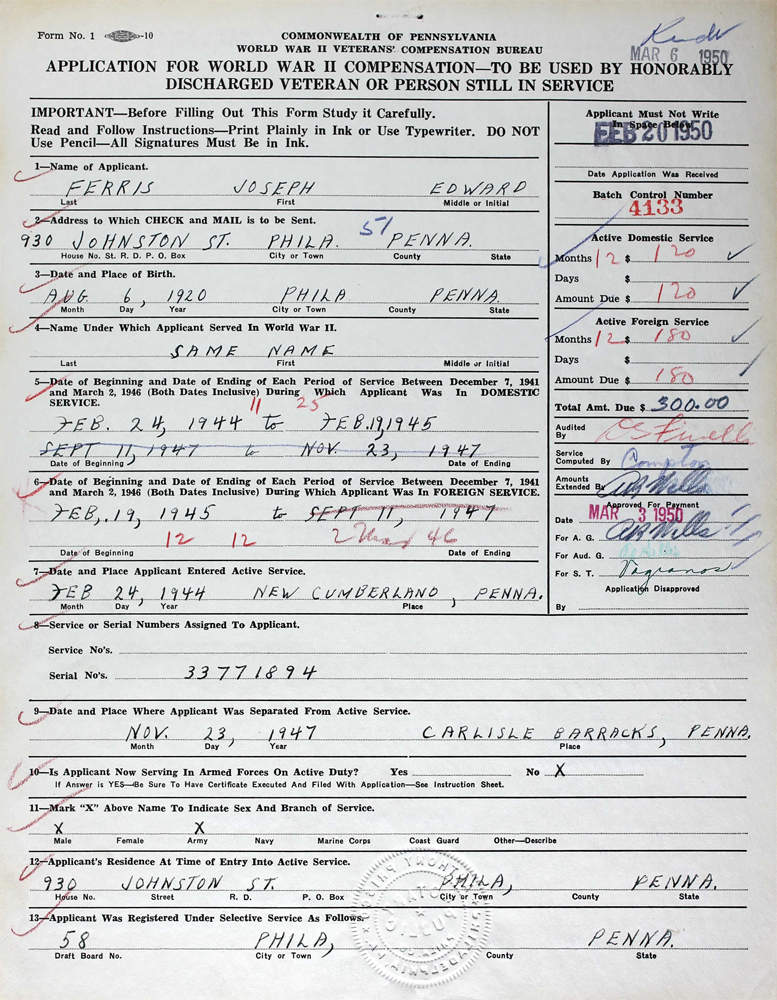 Form No. 1 -10
COMMONWEALTH OF PENNSYLVANIA
WORLD WAR II VETERANS' COMPENSATION BUREAU
MAR 6 1950
APPLICATION FOR WORLD WAR II COMPENSATION—TO BE USED BY HONORABLY
DISCHARGED VETERAN OR PERSON STILL IN SERVICE
IMPORTANT—Before Filling Out This Form Study it Carefully.
Read and Follow Instructions—Print Plainly in Ink or Use Typewriter. DO NOT
Use Pencil—All Signatures Must Be in Ink.
1—Name of Applicant.
FERRIS JOSEPH EDWARD
Last First Middle or Initial
2—Address to Which CHECK and MAIL is to be Sent.
51
930 JOHNSTON ST. PHILA. PENNA.
House No. St. R. D. P. O. Box City or Town County State
3—Date and Place of Birth.
AUG. 6, 1920 PHILA PENNA.
Month Day Year City or Town County State
4—Name Under Which Applicant Served In World War II.
SAME NAME
Last First Middle or Initial
5—Date of Beginning and Date of Ending of Each Period of Service Between December 7, 1941
and March 2, 1946 (Both Dates Inclusive) During Which Applicant Was In DOMESTIC
SERVICE.
11 25
FEB. 24, 1944 to FEB. 19, 1945
SEPT 11, 1947 to NOV. 23, 1947
Date of Beginning Date of Ending
6—Date of Beginning and Date of Ending of Each Period of Service Between December 7, 1941
and March 2, 1946 (Both Dates Inclusive) During Which Applicant Was In FOREIGN SERVICE.
FEB. 19, 1945 to SEPT 11, 1947
12 12 2 Mar 46
Date of Beginning Date of Ending
7—Date and Place Applicant Entered Active Service.
FEB 24, 1944 NEW CUMBERLAND, PENNA.
Month Day Year Place
8—Service or Serial Numbers Assigned To Applicant.
Service No's.
Serial No's. 33771894
9—Date and Place Where Applicant Was Separated From Active Service.
NOV. 23, 1947 CARLISLE BARRACKS, PENNA.
Month Day Year Place
10—Is Applicant Now Serving In Armed Forces On Active Duty? Yes No X
If Answer is YES—Be Sure To Have Certificate Executed And Filed With Application—See Instruction Sheet.
11—Mark "X" Above Name To Indicate Sex And Branch of Service.
X X
Male Female Army Navy Marine Corps Coast Guard Other—Describe
12—Applicant's Residence At Time of Entry Into Active Service.
930 JOHNSTON ST. PHILA, PENNA.
House No. Street R. D. P. O. Box City or Town County State
13—Applicant Was Registered Under Selective Service As Follows:
58 PHILA, PENNA.
Draft Board No. City or Town County State
Applicant Must Not Write
In Space Below
FEB 20 1950
Date Application Was Received
Batch Control Number
4133
Active Domestic Service
Months 12 $ 120
Days $
Amount Due $ 120
Active Foreign Service
Months 12 $ 180
Days $
Amount Due $ 180
Total Amt. Due $ 300.00
Audited
By
Service
Computed By Compton
Amounts
Extended By
Approved For Payment
Date MAR 3 1950
For A. G.
For Aud. G.
For S. T.
Application Disapproved
By